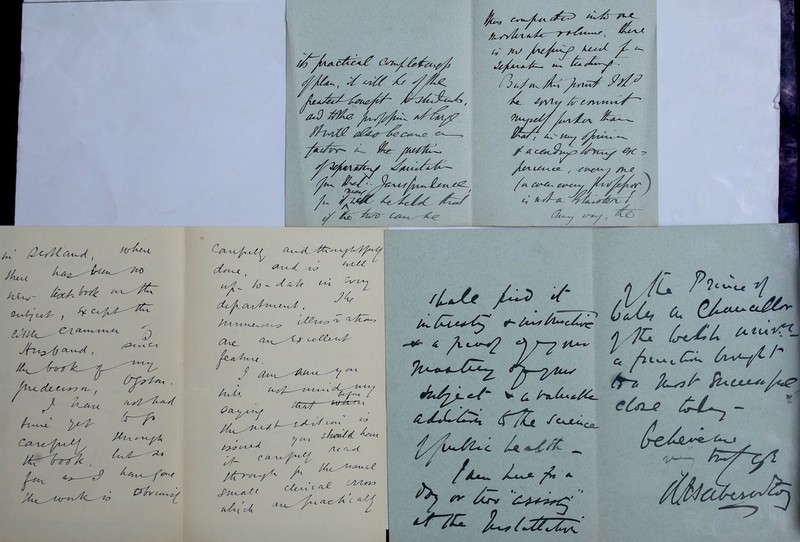 its practical completeness
of plan, it will be of the
greatest benefit to students,
and to the profession at large
It will also become a
factor in the question
of separating Sanitation
from that of Jurisprudence,
for it will be held that
if the two can be
thus compacted into one
moderate volume, there
is no pressing need for
separation in teaching.
But on this point I sh<sup>d</sup>
be sorry to commit
myself further than
that, in my opinion
& according to my ex-
perience, every one
(or even every professor)
is not a
any way, the
in Scotland, where
there has been no
new text-book on the
subject, except the
little crammer of
Husband, since
the book of my
predecessor, Ogston.
I have not had
time yet to go
carefully through
the book, but so
far as I have gone
the work is obviously
carefully and thoughtfully
done, and is well
up-to-date in every
department. The
numerous illustrations
are an excellent
feature.
I am sure you
will not mind my
saying that before
the next edition is
issued you should have
it carefully read
through for the usual
small clerical errors
which are practically
shall find it
interesting & instructive
& a proof of your
mastery of your
subject & a valuable
addition to the science
of public health –
I am here for a
day or two "assisting"
at the Installation
of the Prince of
Wales as Chancellor
of the Welsh Univ:
a function brought
to a most successful
close today –
Believe me